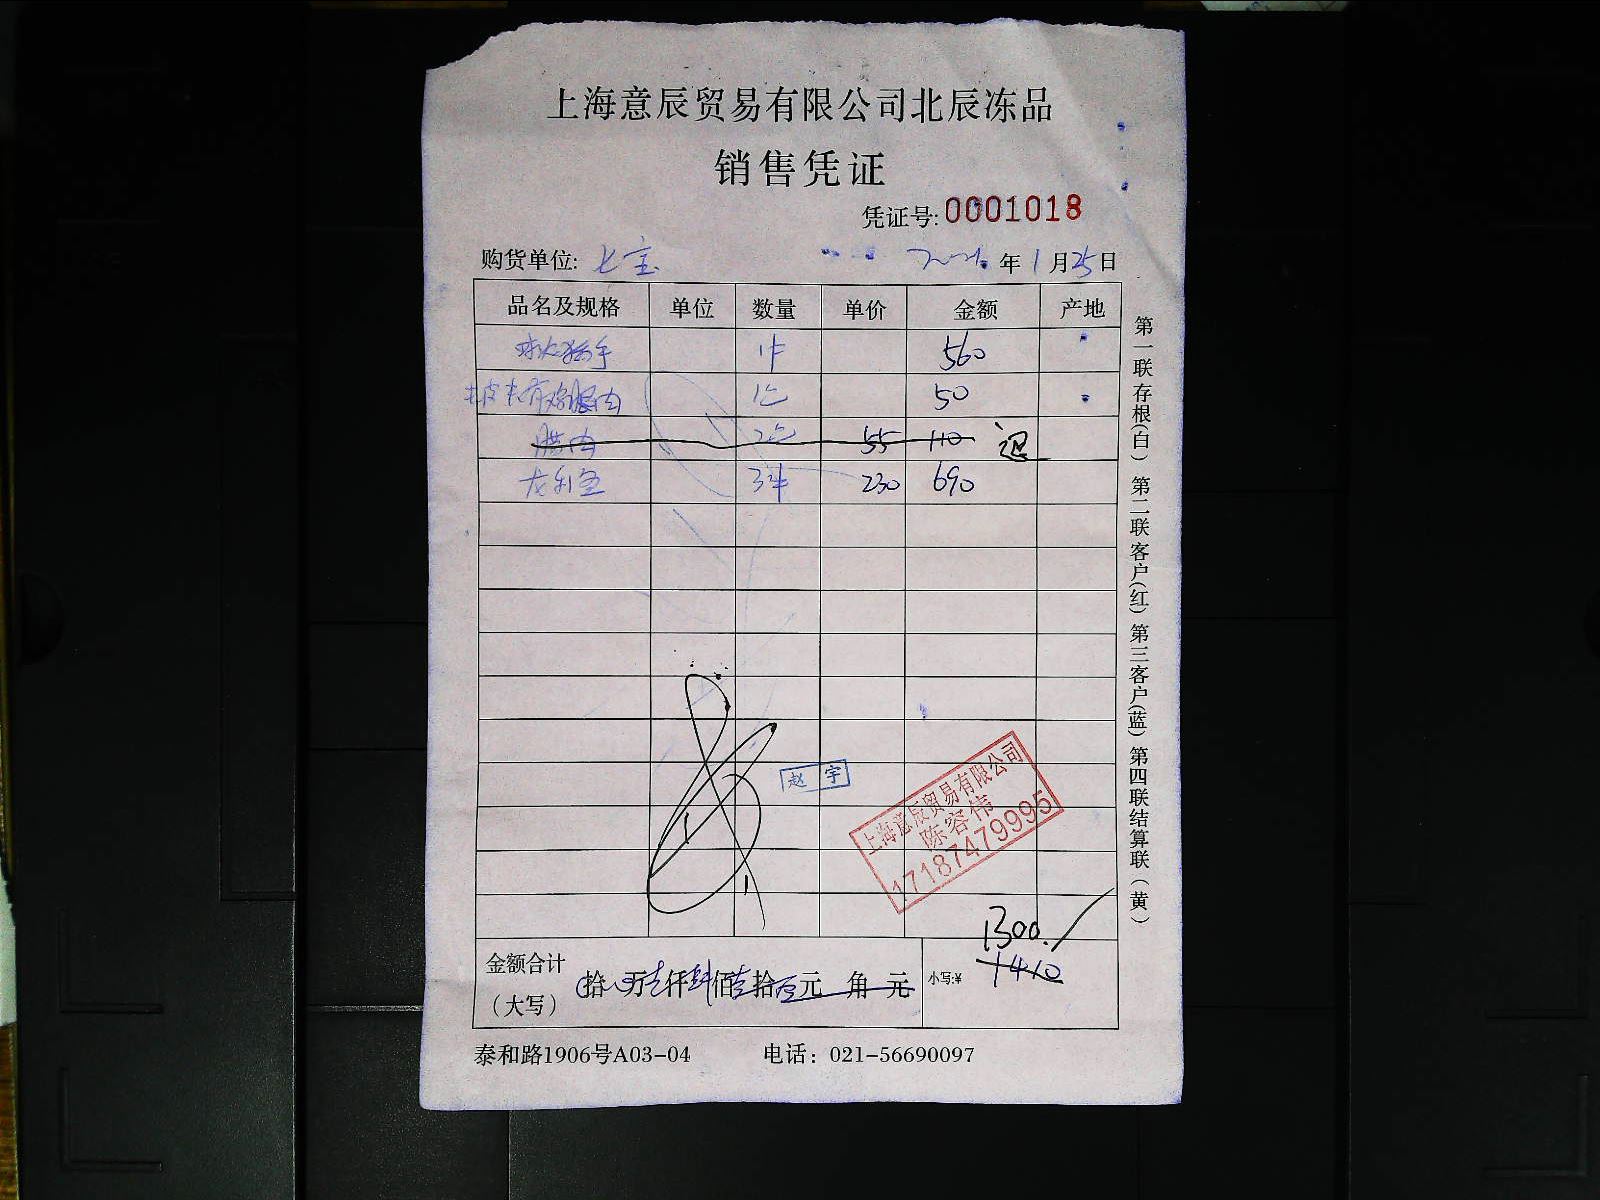 上海意辰贸易有限公司北辰冻品
销售凭证
凭证号:0001018
购货单位: 七宝 年1月25日
品名及规格 单位 数量 单价 金额 产地
1件 560
1包 50
腊肉 2包 55 110 退
龙利鱼 3件 230 690
赵宇
上海意辰贸易有限公司
陈容伟
17187479995
1300.
金额合计
(大写) 拾 万 仟 佰 拾 元 角 元 小写:¥ 1410
泰和路1906号A03-04 电话: 021-56690097
第一联存根(白) 第二联客户(红) 第三客户(蓝) 第四联结算联(黄)